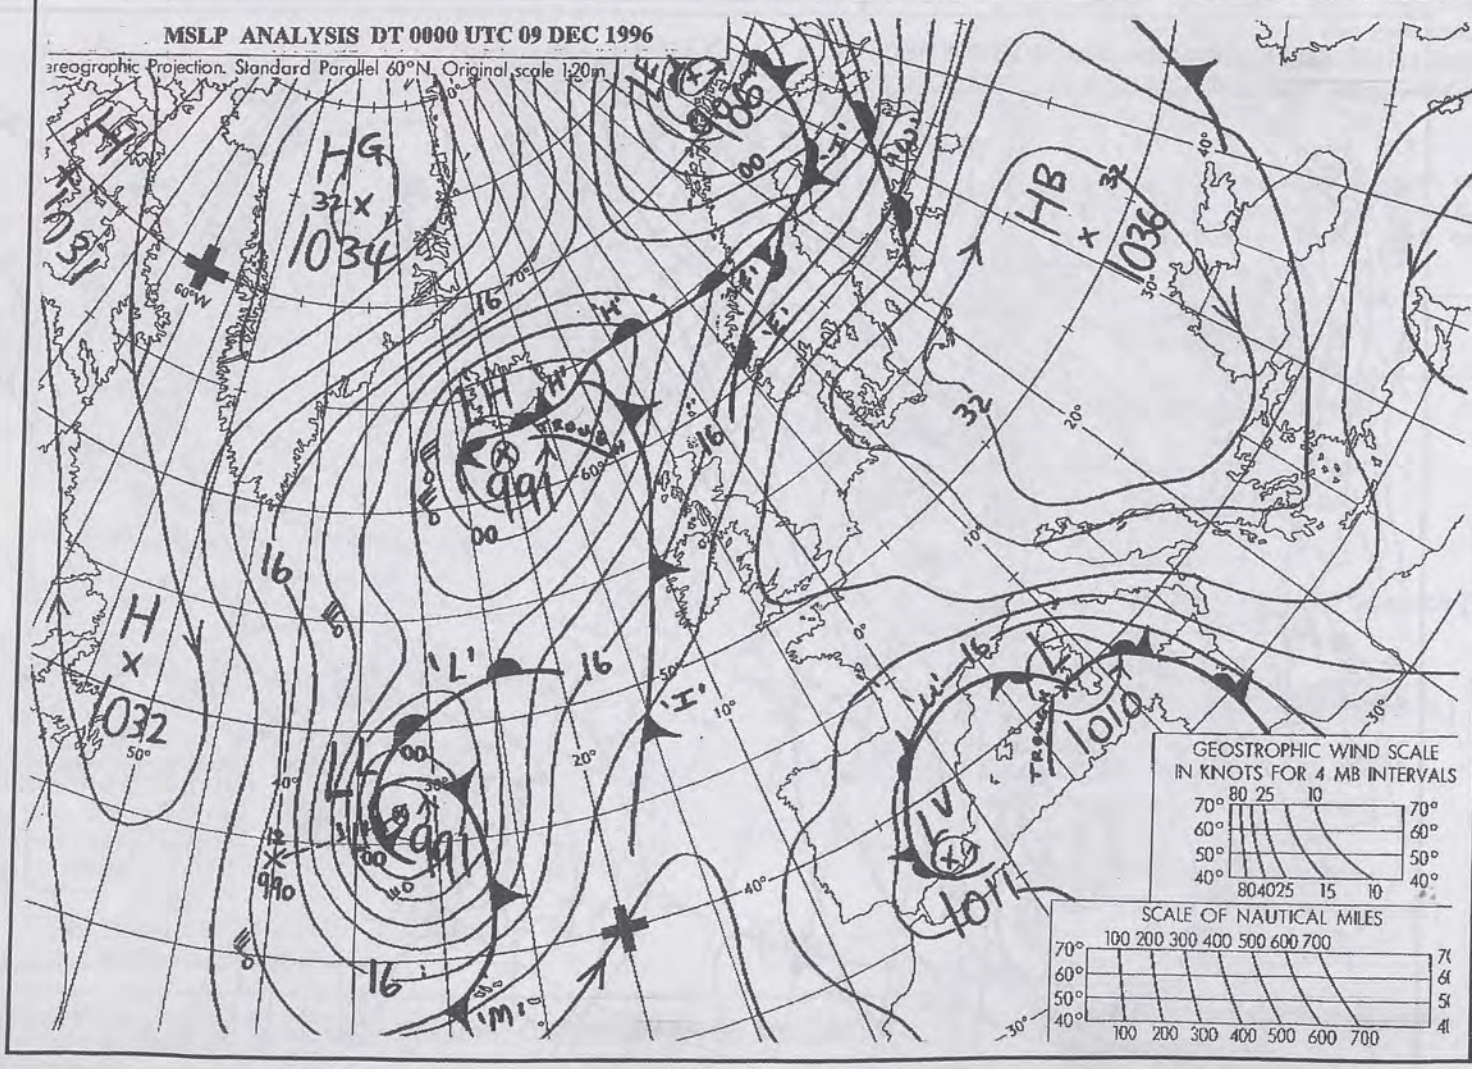 MSLP ANALYSIS DT 0000 UTC 09 DEC 1996
ereographic Projection. Standard Parallel 60°N. Original scale 1:20m
H
1031
60°W
HG
32 X
1034
LF
986
00
'I'
'W'
HB
32
1036
40°
30°
20°
10°
0°
32
70°
16
'H'
LH
'H'
TROUGH
991
60°
00
16
'F'
'E'
16
H
X
1032
50°
'L'
16
50°
10°
'I'
20°
40°
LL
00
30°
991
00
12
X
990
16
'M'
40°
30°
16
'U'
L
1010
TROUGH
30°
LV
1011
GEOSTROPHIC WIND SCALE
IN KNOTS FOR 4 MB INTERVALS
80 25 10
70° 70°
60° 60°
50° 50°
40° 40°
80 40 25 15 10
SCALE OF NAUTICAL MILES
100 200 300 400 500 600 700
70°
60°
50°
40°
100 200 300 400 500 600 700